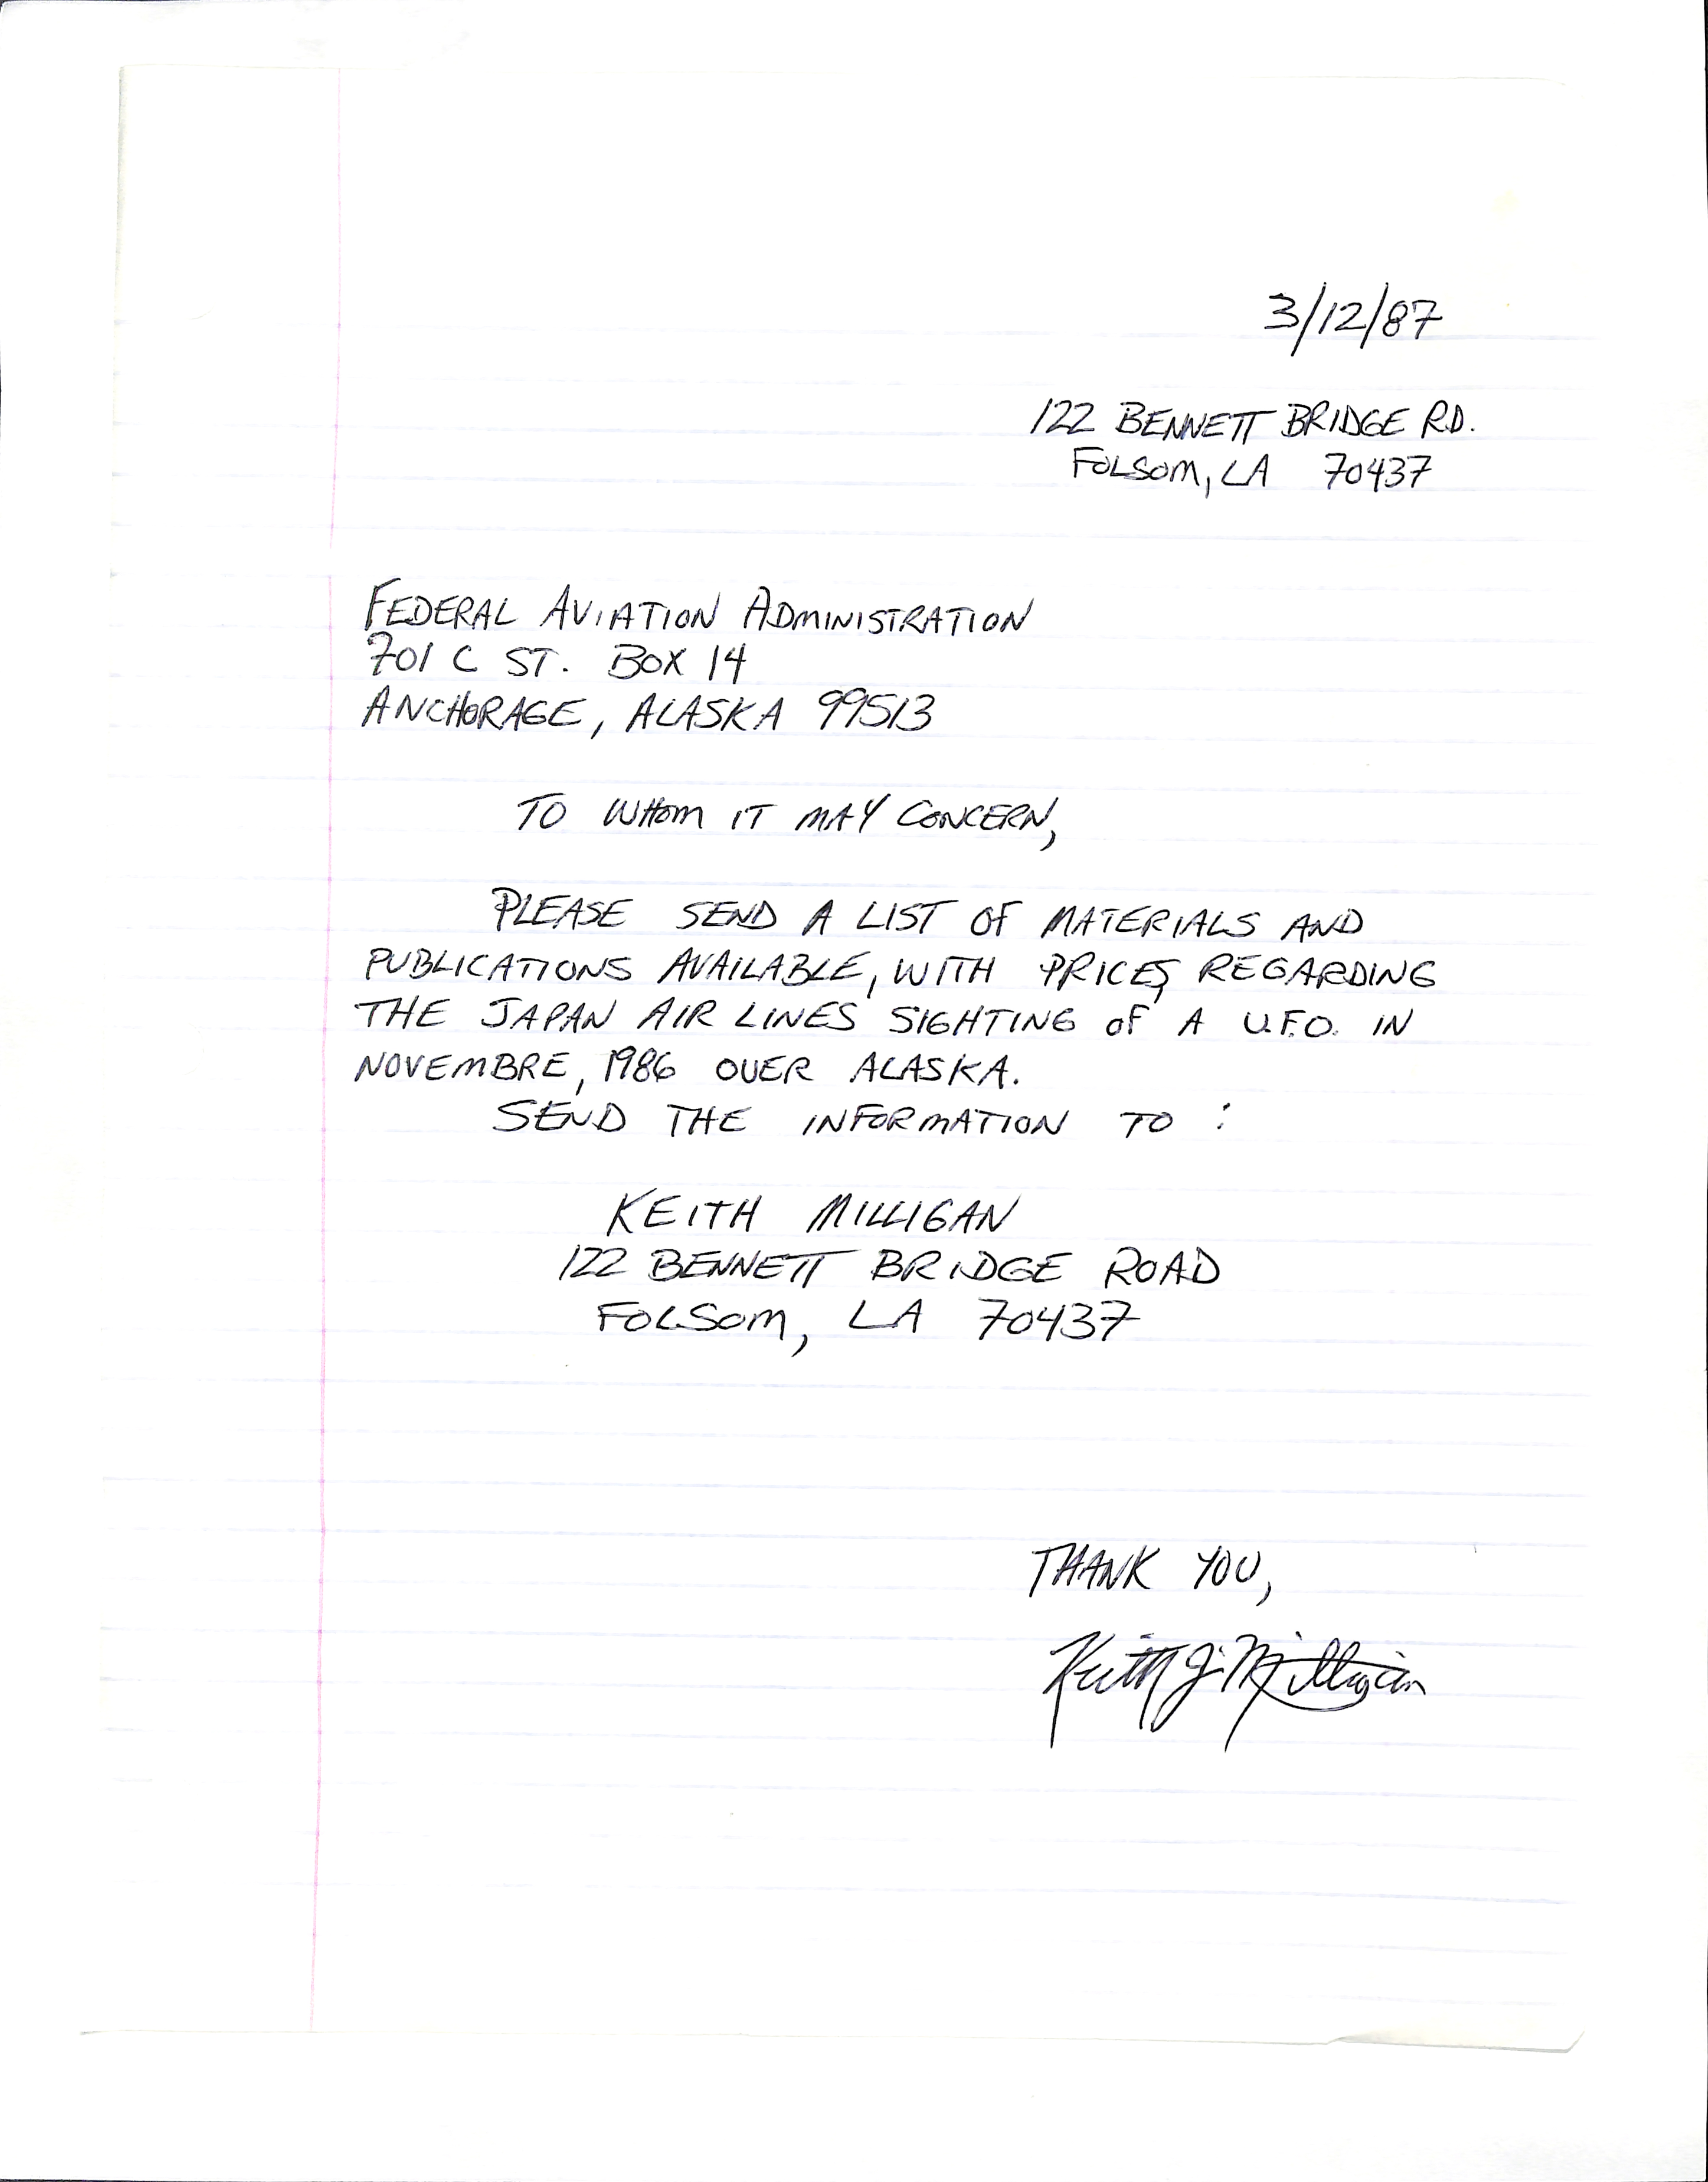 3/12/87
122 BENNETT BRIDGE RD.
FOLSOM, LA 70437
FEDERAL AVIATION ADMINISTRATION
701 C ST. BOX 14
ANCHORAGE, ALASKA 99513
TO WHOM IT MAY CONCERN,
PLEASE SEND A LIST OF MATERIALS AND
PUBLICATIONS AVAILABLE, WITH PRICES, REGARDING
THE JAPAN AIR LINES SIGHTING OF A U.F.O. IN
NOVEMBRE, 1986 OVER ALASKA.
SEND THE INFORMATION TO :
KEITH MILLIGAN
122 BENNETT BRIDGE ROAD
FOLSOM, LA 70437
THANK YOU,
Keith J. Milligan